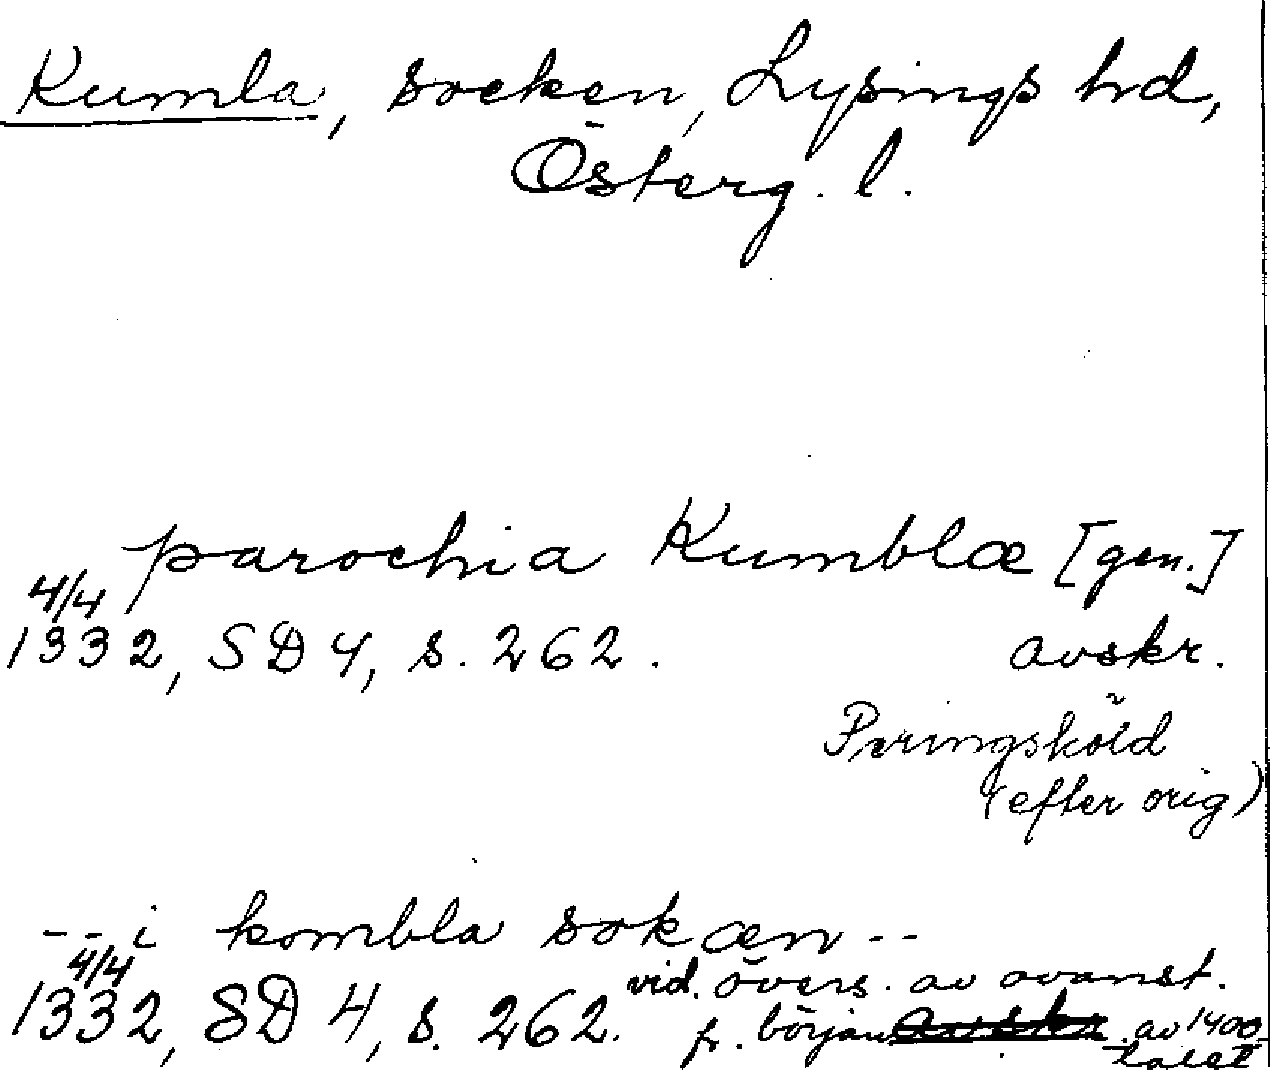 Kumla, socken, Lysings hrd,
Österg. l.
parochia Kumblæ [gen.]
4/4
1332, SD 4, s. 262. avskr.
Peringsköld
(efter orig)
-- i kombla sokæn --
4/4
1332, SD 4, s. 262. vid. övers. av ovanst.
fr. början av 1400-
talet